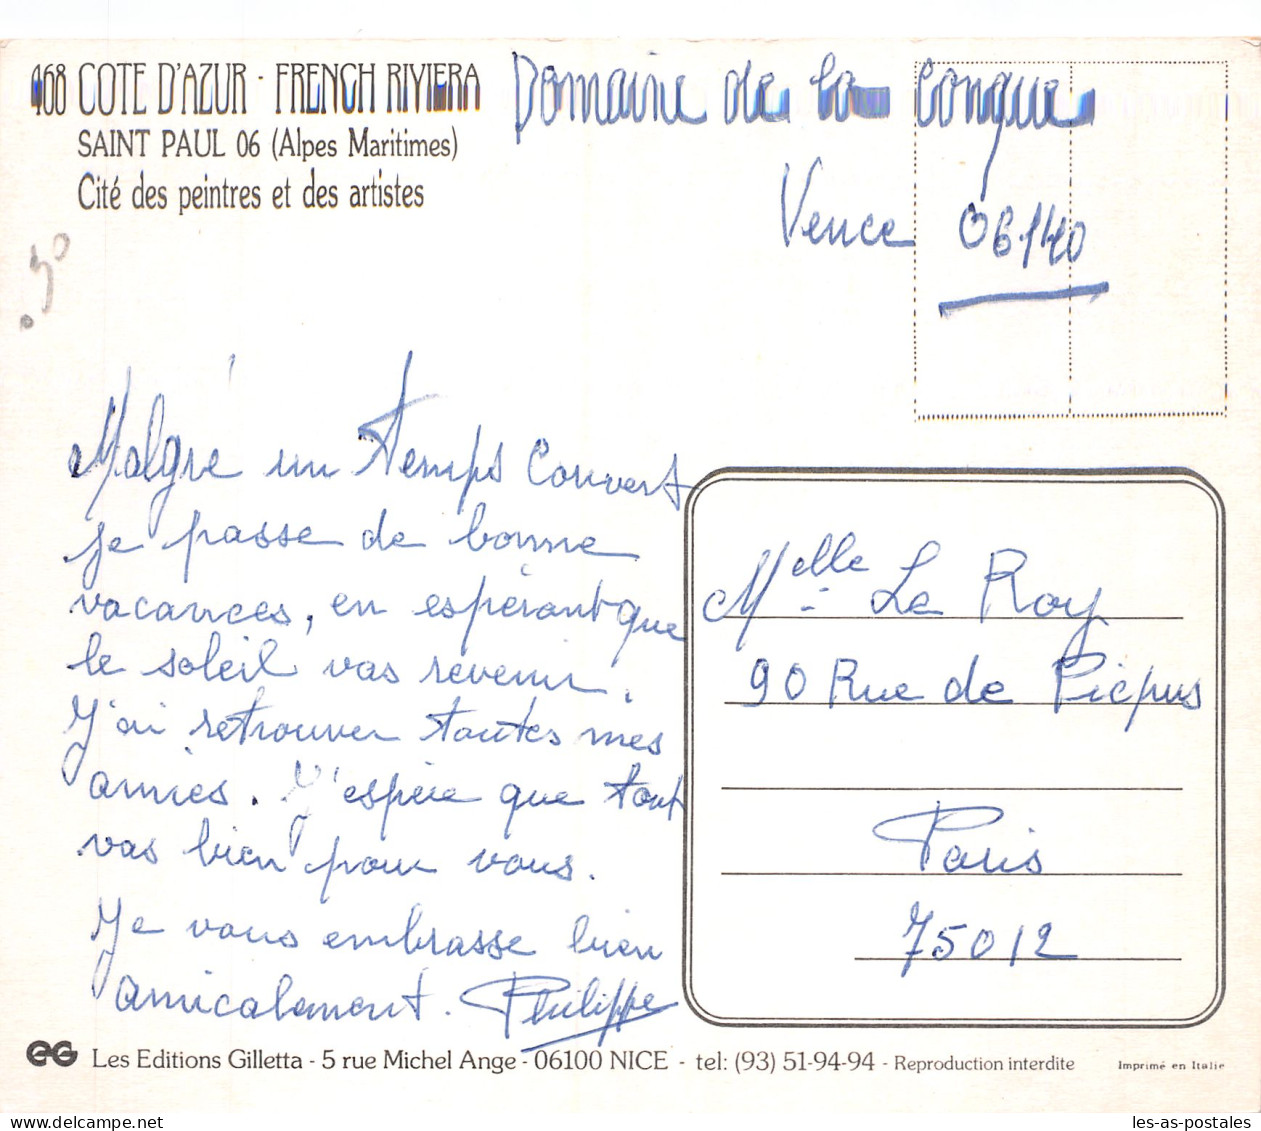 468 COTE D'AZUR - FRENCH RIVIERA
SAINT PAUL 06 (Alpes Maritimes)
Cité des peintres et des artistes
Domaine de la Conque
Vence 06140
Malgré un temps couvert
je passe de bonne
vacances, en espérant que
le soleil vas revenir.
J'ai retrouver toutes mes
amies. J'espére que tout
vas bien pour vous.
Je vous embrasse bien
amicalement. Philippe
Melle Le Roy
90 Rue de Picpus
Paris
75012
EG Les Editions Gilletta - 5 rue Michel Ange - 06100 NICE - tel: (93) 51-94-94 - Reproduction interdite
Imprimé en Italie
les-as-postales.com